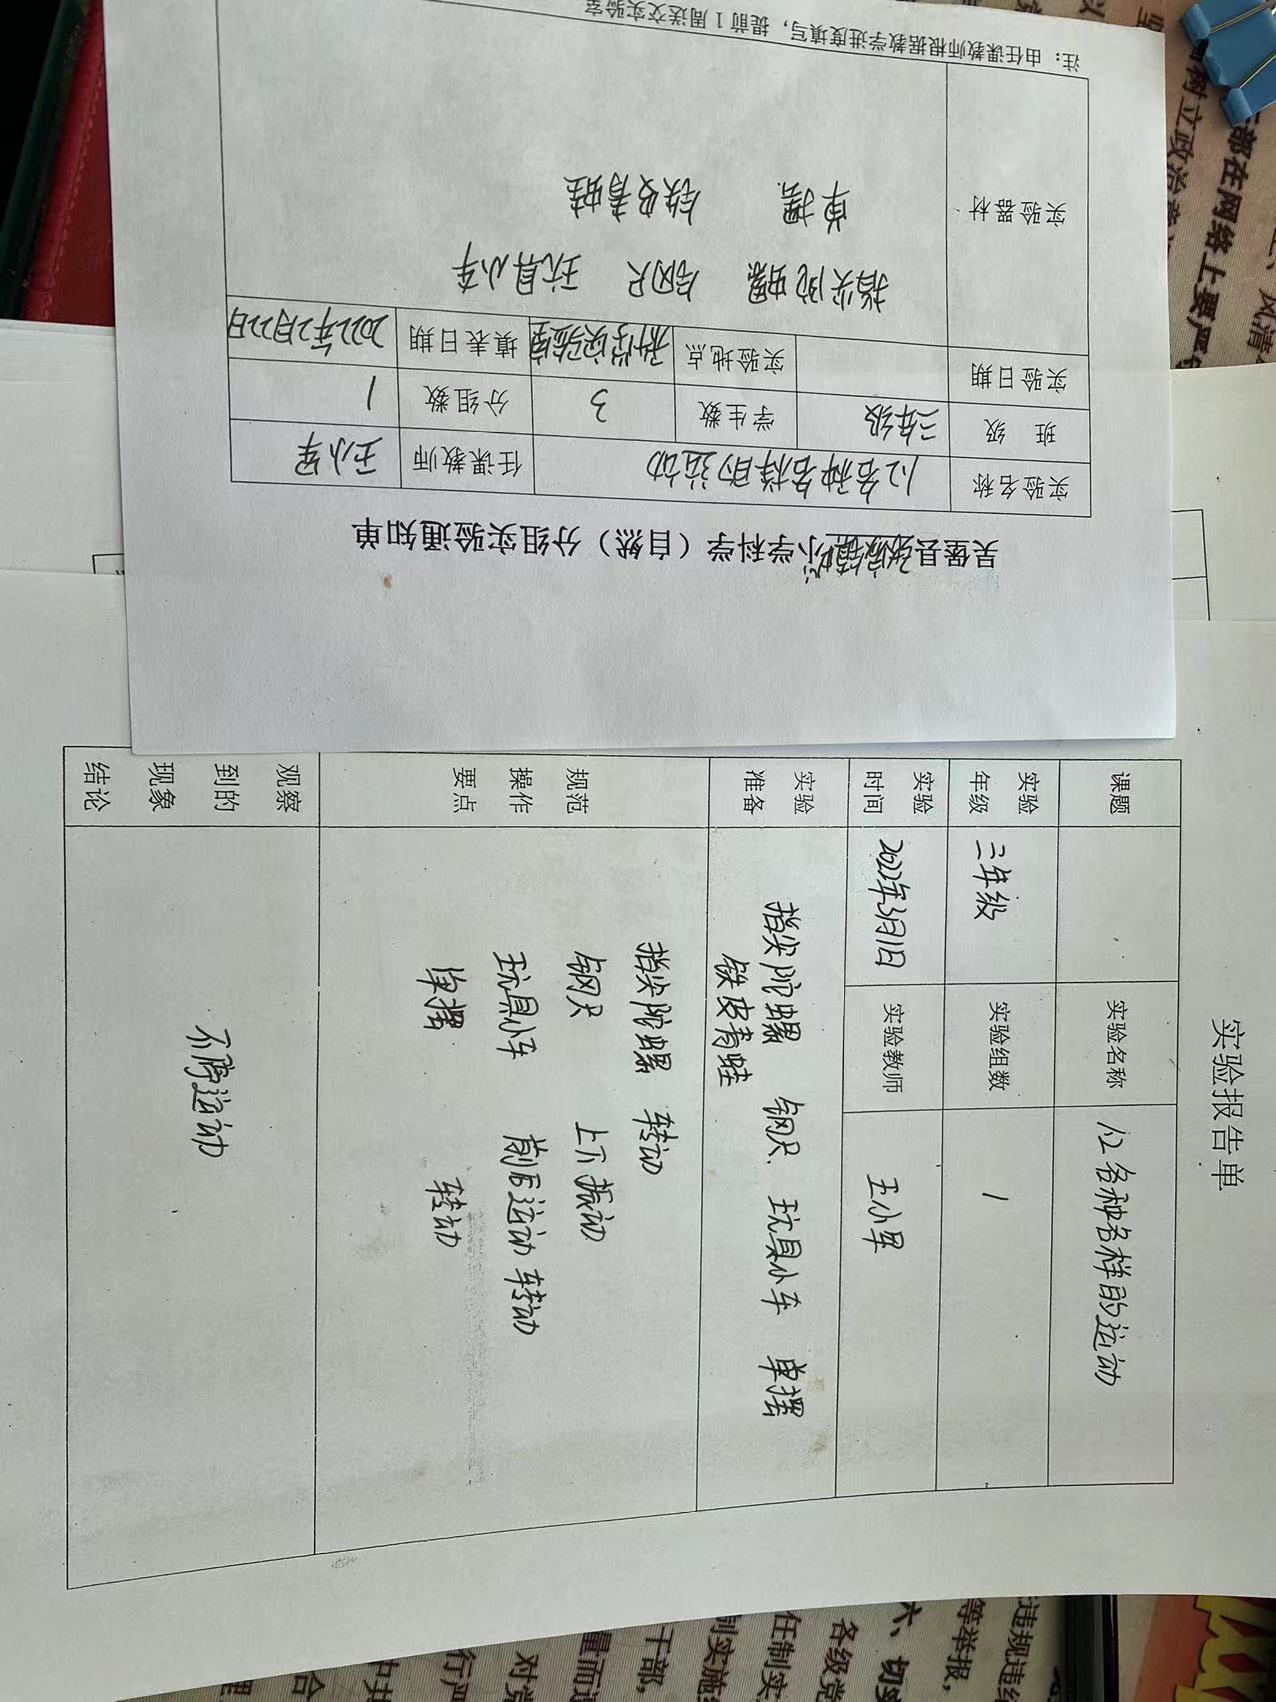 吴堡县张家墕小学科学（自然）分组实验通知单
实验名称 12各种各样的运动 任课教师 王小军
班 级 三年级 学生数 3 分组数 1
实验日期 实验地点 科学实验室 填表日期 2022年2月22日
实验器材
指尖陀螺 钢尺 玩具小车
单摆 铁皮青蛙
注：由任课教师根据教学进度填写，提前1周送交实验室
实验报告单
课题 实验名称 12各种各样的运动
实验年级 三年级 实验组数 1
实验时间 2022年3月1日 实验教师 王小军
实验准备
指尖陀螺 钢尺、玩具小车 单摆
铁皮青蛙
规范操作要点
指尖陀螺 转动
钢尺 上下振动
玩具小车 前后运动 转动
单摆 转动
观察到的现象结论
不停运动
部在网络上要严
树立政治
风清
违规违纪
等举报，
六、切实
各级党
任制实
制实施
干部，
量而
对党
行严